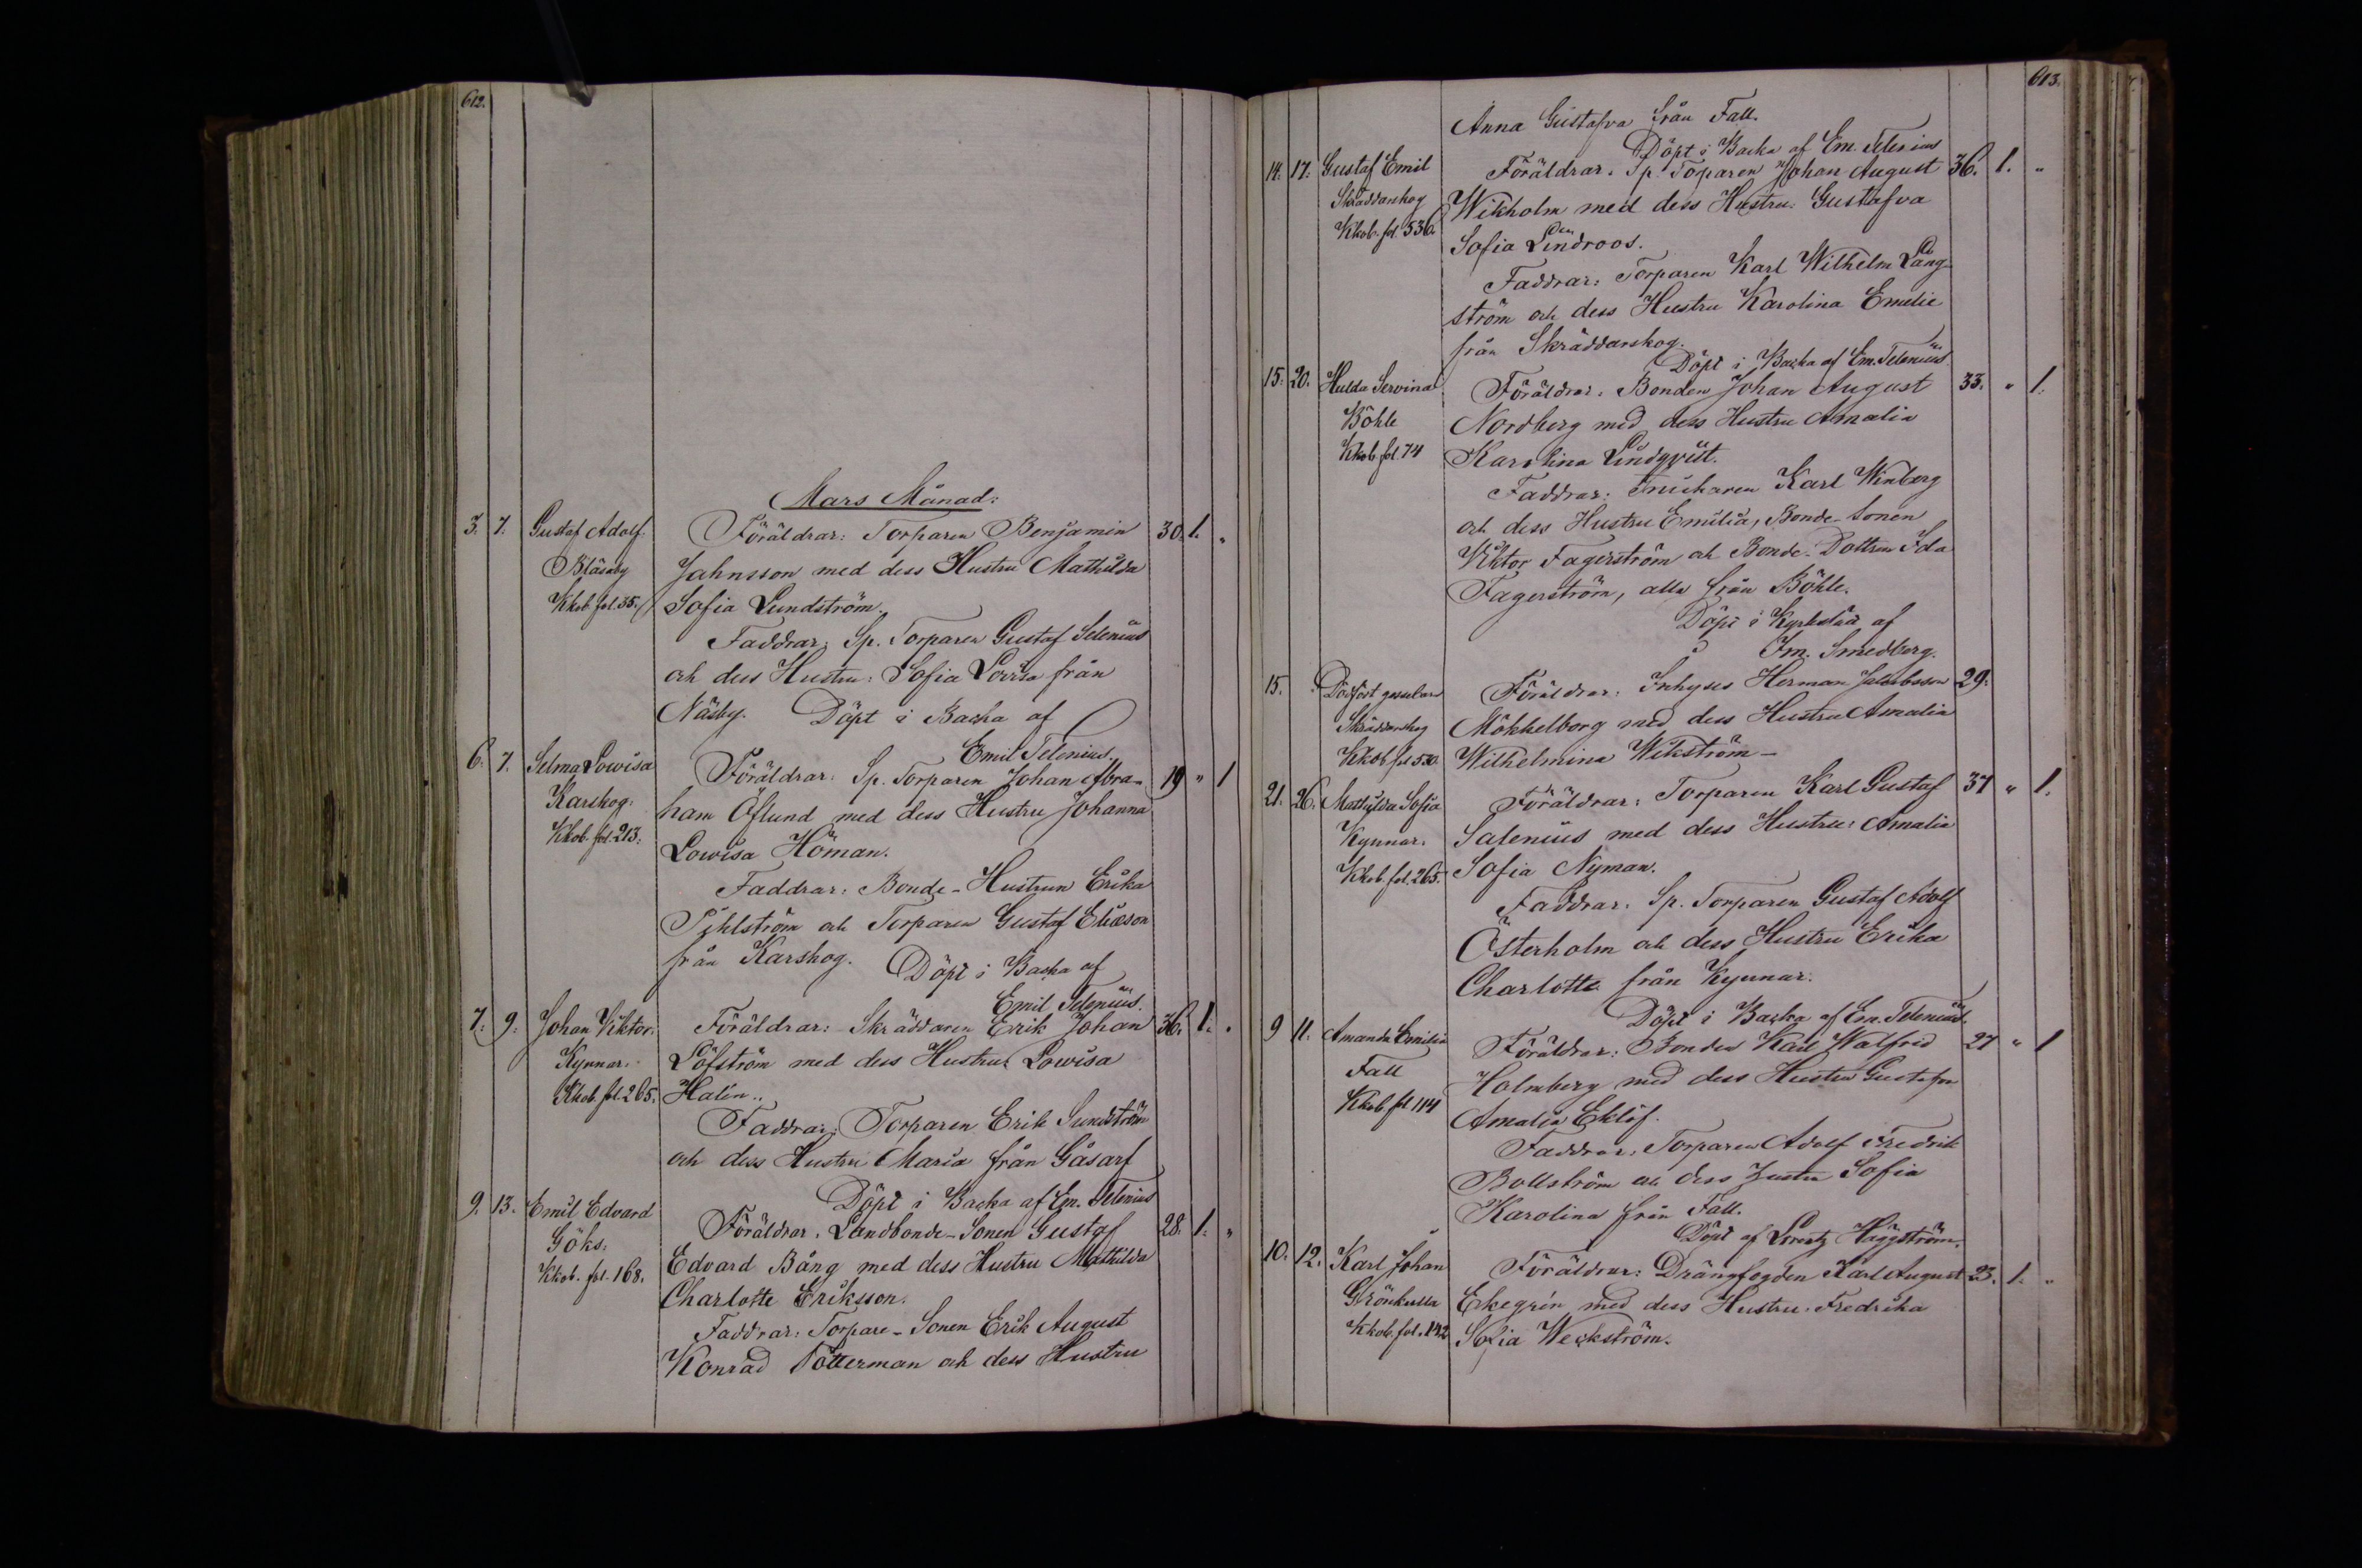 612.
Mars Månad:
3. 7. Gustaf Adolf. Föräldrar: Torparen Benjamin 30. 1. "
Bläsaby Jahnsson med dess Hustru Mathilda
Kkob fol. 35. Sofia Lundström.
Faddrar: Sp. Torparen Gustaf Selenius
och dess Hustru: Sofia Lovisa från
Näsby. Döpt i Backa af
Emil Telenius.
6. 7. Selma Lowisa Föräldrar: Sp. Torparen Johan Abra- 19 " 1
Karskog: ham Öflund med dess Hustru Johanna
Kkob. fol. 213. Lowisa Höman.
Faddrar: Bonde-Hustrun Erika
Pihlström och Torparen Gustaf Eliæson
från Karskog. Döpt i Backa af
Emil Telenius.
7. 9. Johan Viktor. Föräldrar: Skräddaren Erik Johan 36. 1. "
Kynnar. Löfström med dess Hustru Lowisa
Kkob. fol. 265. Halin..
Faddrar: Torparen Erik Sundström
och dess Hustru Maria från Gåsarf
Döpt i Backa af Em. Telenius
9. 13. Emil Edvard Föräldrar. Landbonde-Sonen Gustaf 28. 1. "
Göks. Edvard Bång med dess Hustru Mathilda
Kkob. fol. 168. Charlotte Eriksson.
Faddrar: Torpare-Sonen Erik August
Konrad Potterman och dess Hustru
613.
Anna Gustafva från Fall.
Döpt i Backa af Em. Telenius
14. 17. Gustaf Emil Föräldrar. Sp. Torparen Johan August 36. 1. "
Skräddarskog Wikholm med dess Hustru: Gustafva
Kkob. fol. 530. Sofia Lindroos.
Faddrar: Torparen Karl Wilhelm Lång-
ström och dess Hustru Karolina Emelie
från Skräddarskog.
Döpt i Backa af Em. Telenius.
15. 20. Hulda Servina Föräldrar. Bonden Johan August 33. " 1.
Böhle Nordberg med dess Hustru Amalia
Kkob fol. 74 Karolina Lindqvist.
Faddrar: Snickaren Karl Winberg
och dess Hustru Emilia, Bonde-Sonen
Viktor Fagerström och Bonde-Dottren Ida
Fagerström, alla från Böhle.
Döpt i Kyrkslätt af
Im. Smedberg.
15. Dödfödt gossebarn Föräldrar. Inhyses Herman Jakobsson 29.
Skräddarskog Mökkelborg med dess Hustru Amalia
Kkob fol 530. Wilhelmina Wikström-
21. 26. Mathilda Sofia Föräldrar: Torparen Karl Gustaf 37 " 1.
Kynnar. Salenius med dess Hustru: Amalia
Kkob. fol. 265. Sofia Nyman.
Faddrar. Sp. Torparen Gustaf Adolf
Österholm och dess Hustru Erika
Charlotta från Kynnar.
Döpt i Backa af Em. Telenius.
9 11. Amanda Emilia Föräldrar: Bonden Karl Walfrid 27 " 1
Fall Holmberg med dess Hustru Gustafva
Kkob. fol 114 Amalia Eklöf.
Faddrar: Torparen Adolf Fredrik
Bollström och dess Hustru Sofia
Karolina från Fall.
Döpt af Lorentz Häggström.
10. 12. Karl Johan Föräldrar: Drängfogden Karl August 23. 1. "
Grönkulla Ekegrén med dess Hustru. Fredrika
Kkob. fol. 142 Sofia Weckström.